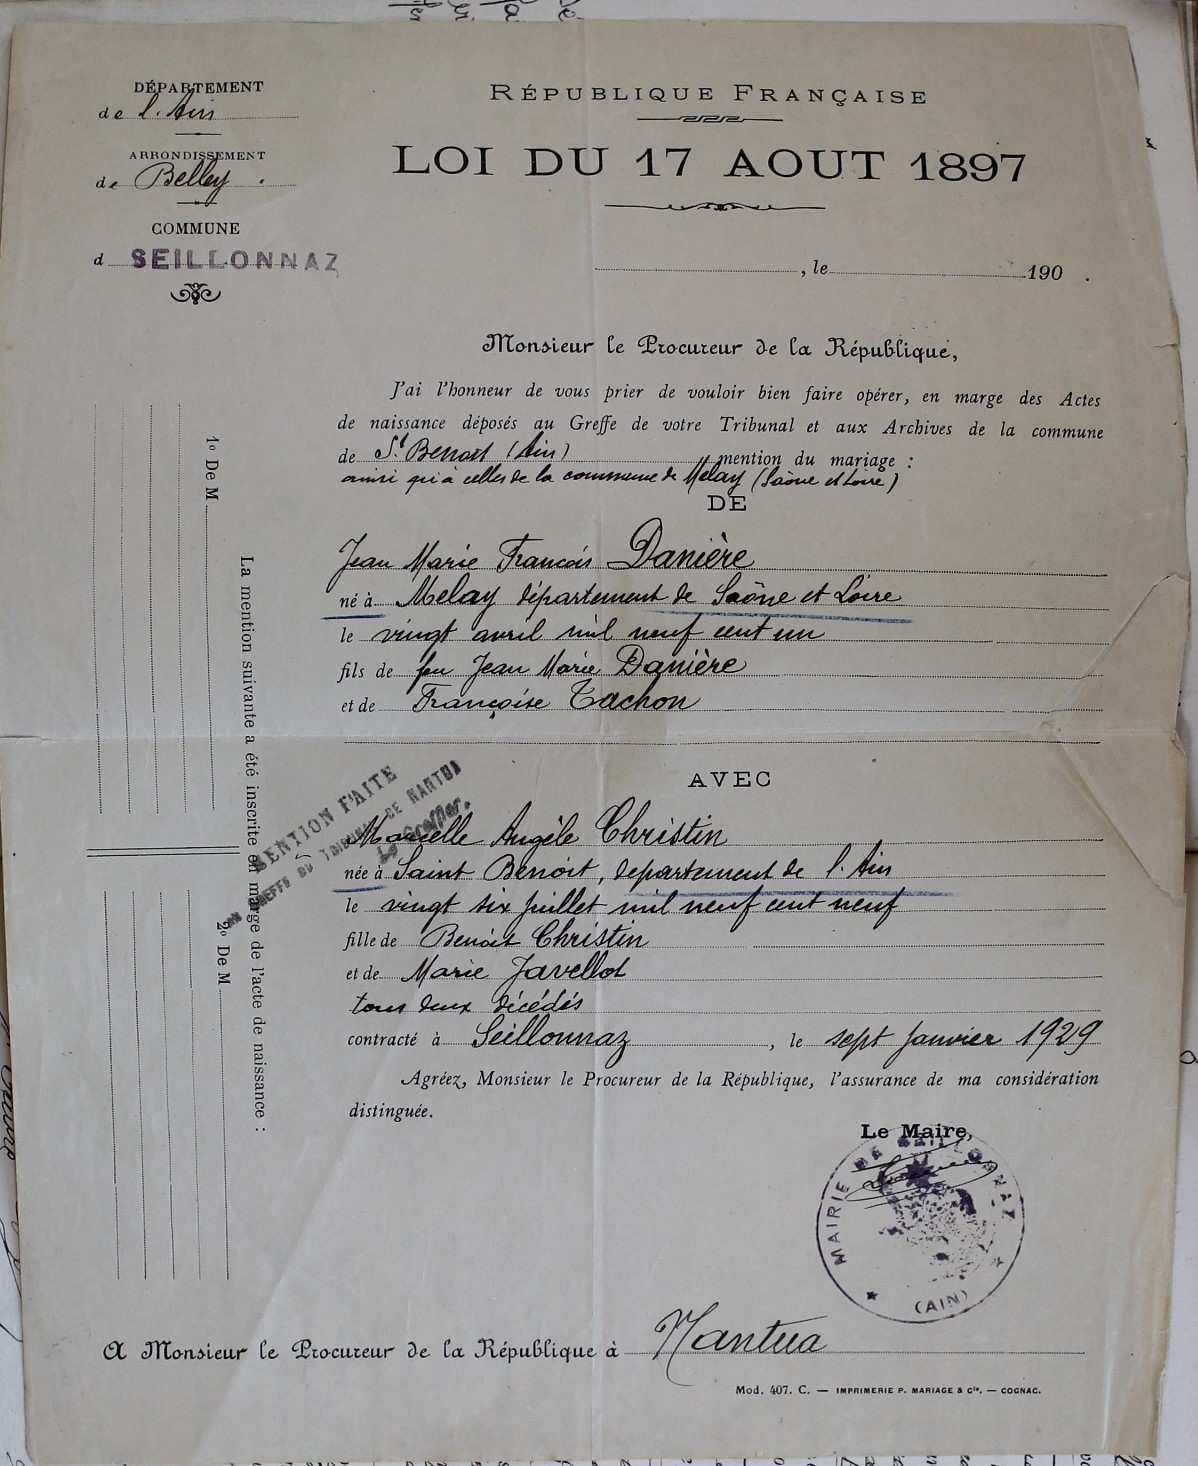 DÉPARTEMENT
de l'Ain
ARRONDISSEMENT
de Belley
COMMUNE
d SEILLONNAZ
RÉPUBLIQUE FRANÇAISE
LOI DU 17 AOUT 1897
, le 190 .
Monsieur le Procureur de la République,
J'ai l'honneur de vous prier de vouloir bien faire opérer, en marge des Actes
de naissance déposés au Greffe de votre Tribunal et aux Archives de la commune
de St Benoit (Ain) mention du mariage :
ainsi qu'à celles de la commune de Melay (Saône et Loire)
DE
Jean Marie François Danière
né à Melay département de Saône et Loire
le vingt avril mil neuf cent un
fils de feu Jean Marie Danière
et de Françoise Tachon
AVEC
Marcelle Angèle Christin
née à Saint Benoit, département de l'Ain
le vingt six juillet mil neuf cent neuf
fille de Benoit Christin
et de Marie Javellot
tous deux décédés
contracté à Seillonnaz, le sept janvier 1929
Agréez, Monsieur le Procureur de la République, l'assurance de ma considération
distinguée.
Le Maire,
MAIRIE DE SEILLONNAZ
(AIN)
A Monsieur le Procureur de la République à Nantua
Mod. 407. C. — IMPRIMERIE P. MARIAGE & Cie. — COGNAC.
La mention suivante a été inscrite en marge de l'acte de naissance :
1º De M
2º De M
MENTION FAITE
AU GREFFE DU TRIBUNAL DE NANTUA
Le Greffier.